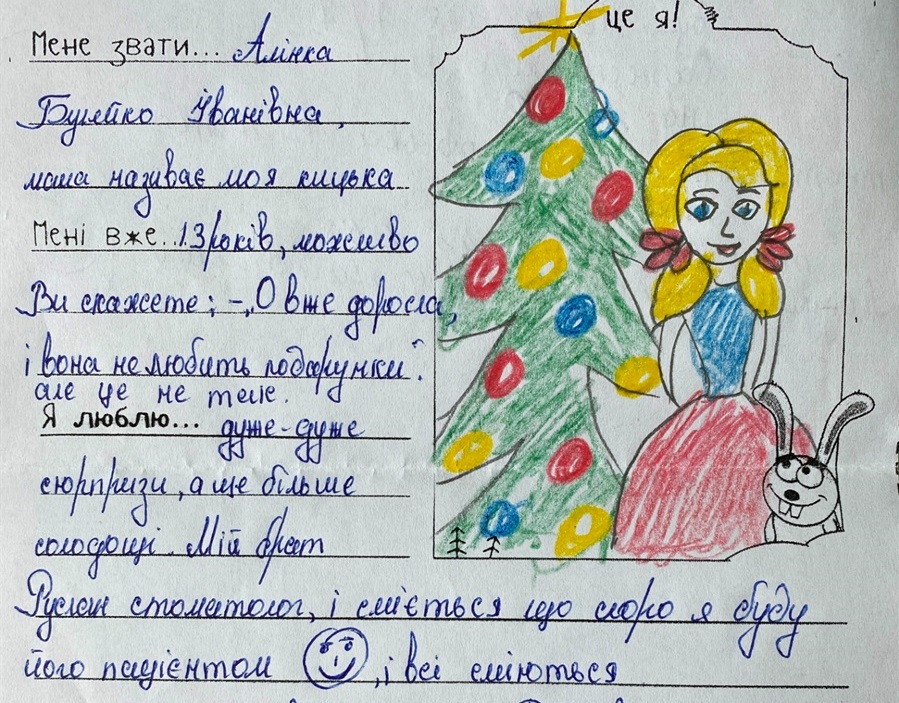 це я!
Мене звати... Алінка
Булейко Іванівна,
мама називає моя кицька
Мені вже... 13 років, можливо
Ви скажете: - „О вже доросла,
і вона не любить подарунки".
але це не теке.
Я люблю... дуже-дуже
сюрпризи, а ще більше
солодощі. Мій брат
Руслан стоматолог, і сміється що скоро я буду
його пацієнтом , і всі сміються